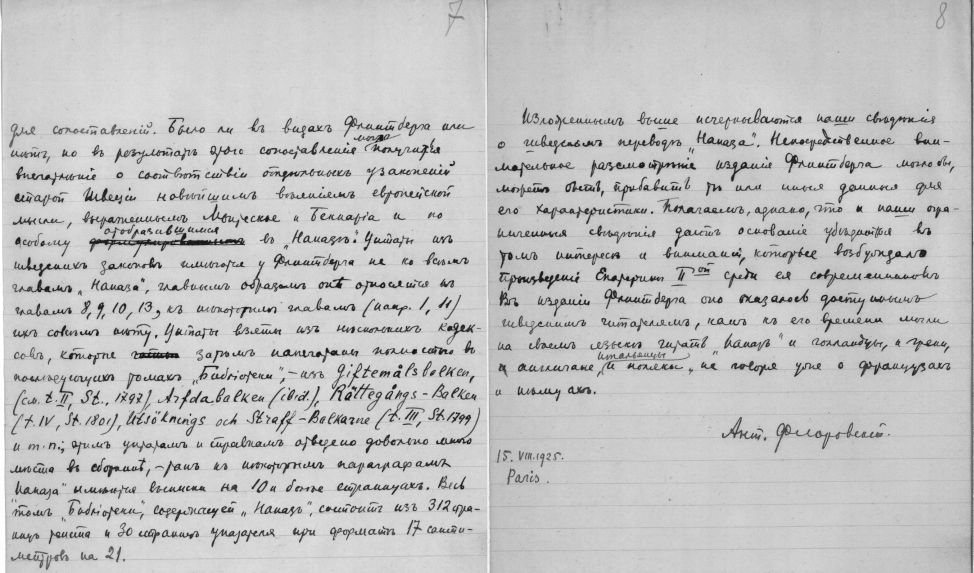 7
для сопоставленiй. Было ли въ видахъ Флинтберга или
нѣтъ, но въ результатѣ этого сопоставленiя могла получится
впечатлѣнiе о соотвѣтствiи отдѣльныхъ узаконенiй
старой Швецiи новѣйшимъ вѣянiемъ европейской
мысли, выраженнымъ Монтескье и Беккарiа и по
особому отобразившимся въ „Наказѣ". Цитаты изъ
шведскихъ законовъ имѣются у Флинтберга не ко всѣмъ
главамъ „Наказа", главнымъ образомъ онѣ относятся къ
главамъ 8, 9, 10, 13, къ нѣкоторымъ главамъ (напр. 1, 11)
ихъ совсѣмъ нѣту. Цитаты взяты изъ нѣсколькихъ кодек-
совъ, которые затѣмъ напечатаны полностью въ
послѣдующихъ томахъ „Библiотеки", – изъ Giftemålsbalken,
(см. t. II, St., 1797) Ärfdabalken (ibid.), Rättegångs-Balken
(t. IV, St. 1801), Utsöknings och Straff-Balkarne (t. III, St. 1799)
и т.п.; этимъ цитатамъ и справкамъ отведено довольно много
мѣста въ сборникѣ, – такъ къ нѣкоторымъ параграфамъ
„Наказа" имѣются выписки на 10 и болѣе страницахъ. Весь
томъ „Библiотеки", содержащей „Наказъ", состоитъ изъ 312 стра-
ницъ текста и 30 страницъ указателя при форматѣ 17 санти-
метровъ на 21.
8
Изложеннымъ выше исчерпываются наши свѣдѣнiя
о шведскомъ переводѣ „Наказа". Непосредственное вни-
мательное разсмотрѣнiе изданiя Флинтберга могло бы,
можетъ быть, прибавить тѣ или иныя данныя для
его характеристики. Полагаемъ, однако, что и наши огра-
ниченныя свѣдѣнiя даютъ основанiе убѣдиться въ
томъ интересѣ и вниманiи, которые возбуждало
произведенiе Екатерины II ой среди ея современниковъ
Въ изданiи Флинтберга оно оказалось доступнымъ
шведскимъ читателямъ, какъ къ его времени могли
на своемъ языкѣ читать „Наказъ" и голландцы, и греки,
и англичане, и итальянцы и поляки, не говоря уже о французахъ
и нѣмцахъ.
Ант. Флоровскiй.
15. VIII. 1925.
Paris.